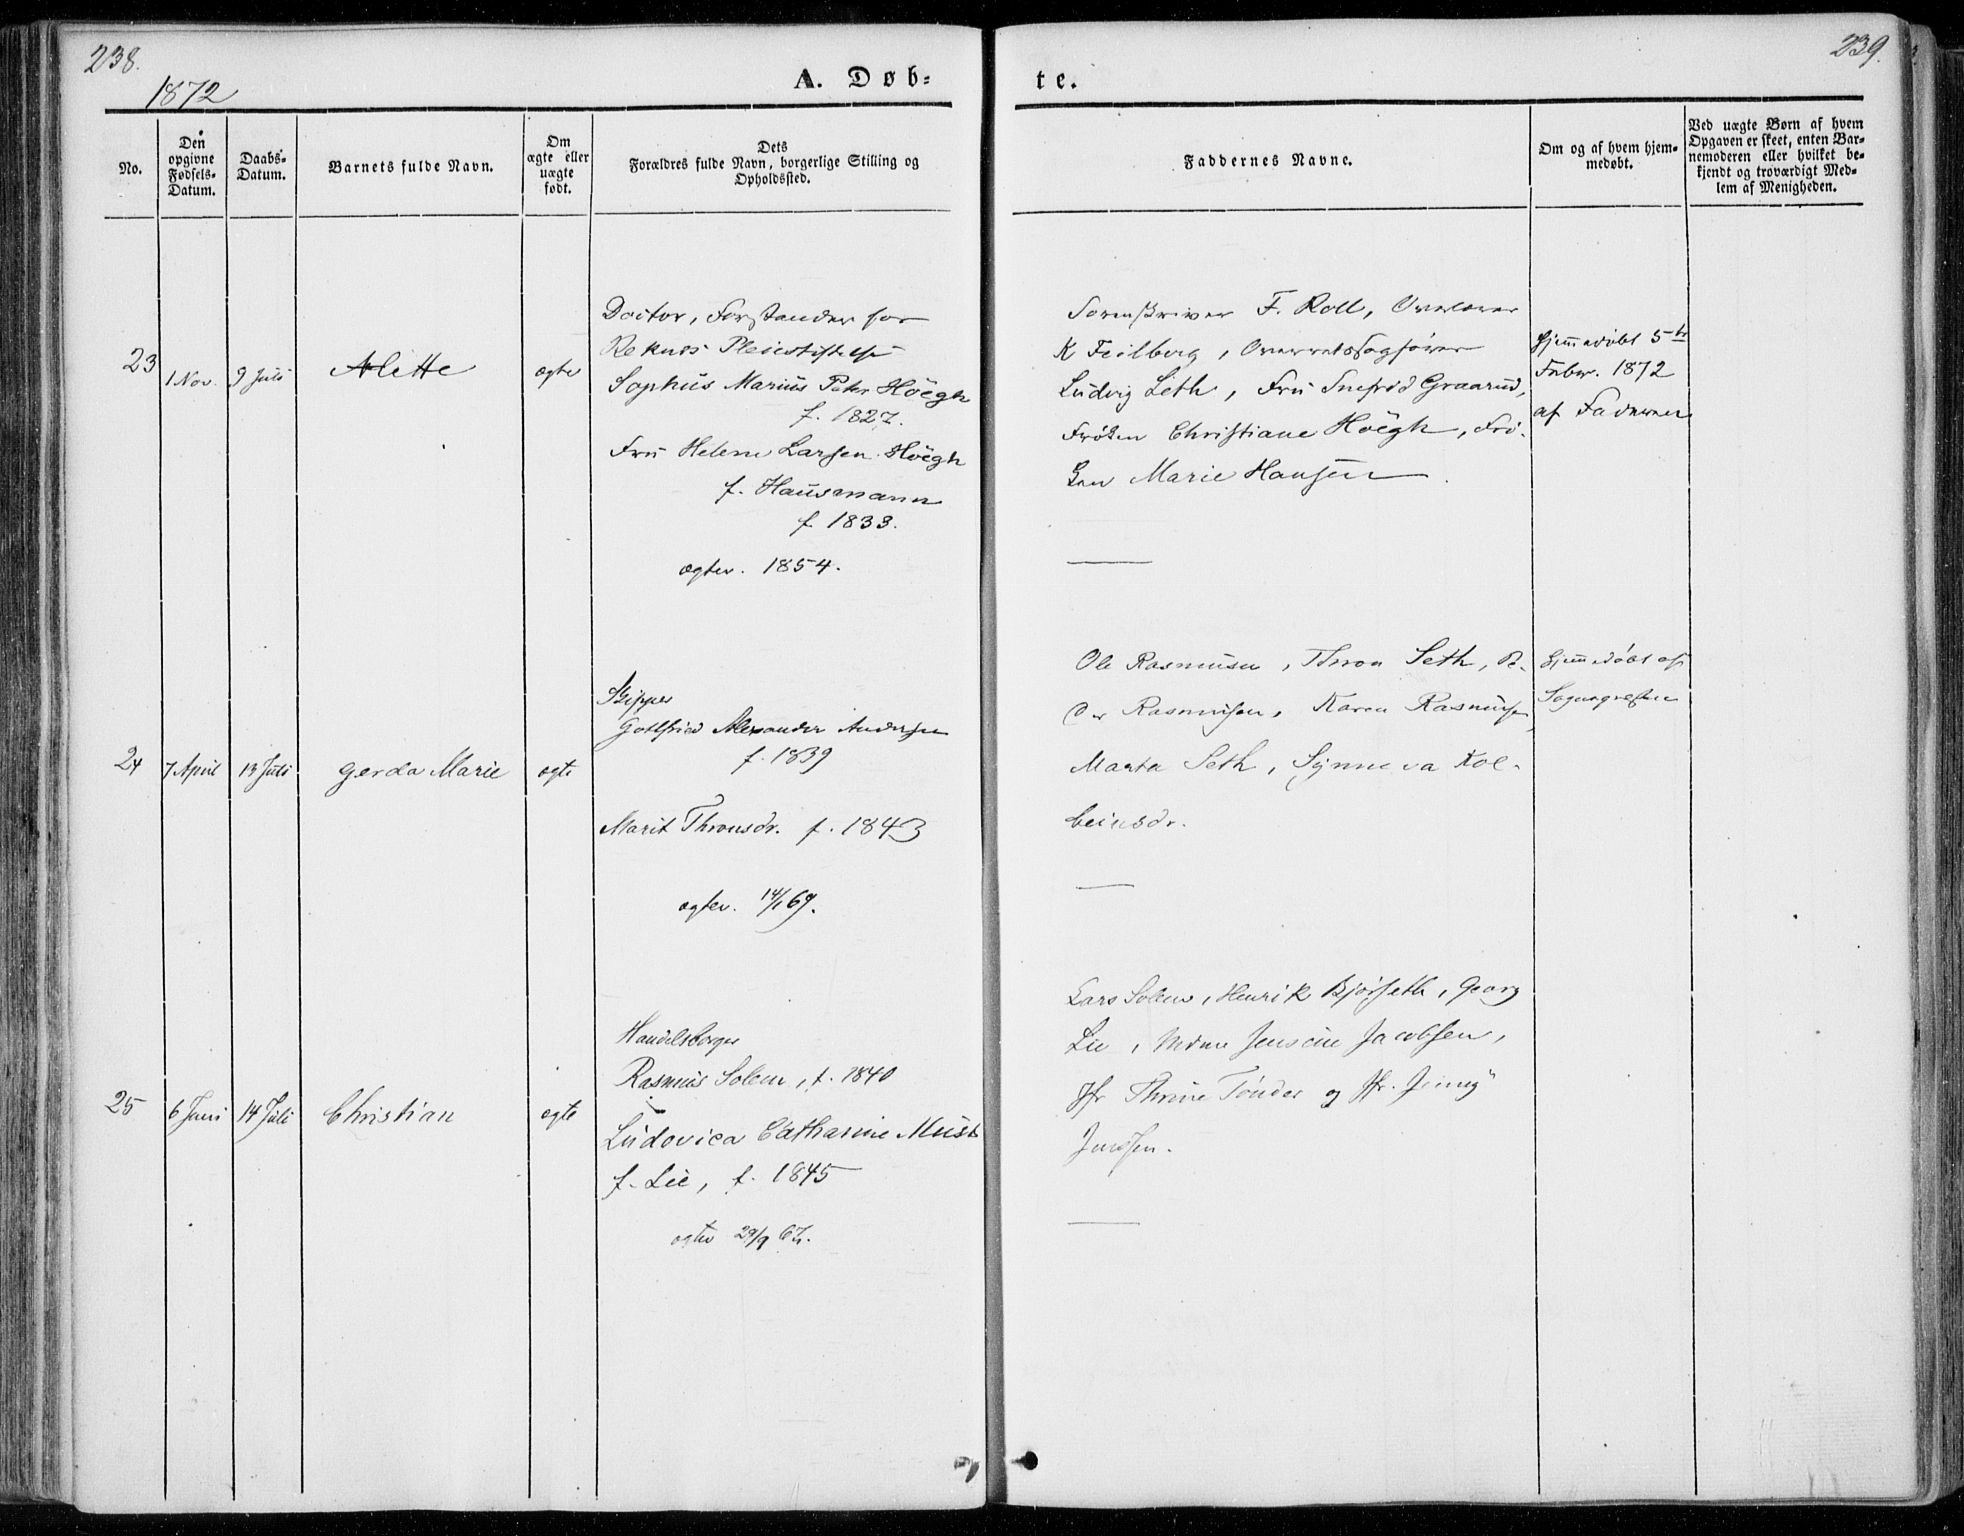 238.
239.
1872
A. Døb-
te.
No.
Den opgivne Fødsels-Datum.
Daabs-Datum.
Barnets fulde Navn.
Om ægte eller uægte født.
Dets
Forældres fulde Navn, borgerlige Stilling og
Opholdssted.
Faddernes Navne.
Om og af hvem hjem-
medøbt.
Ved uægte Børn af hvem
Opgaven er skeet, enten Bar-
nemoderen eller hvilket be-
kjendt og troværdigt Med-
lem af Menigheden.
23
1 Nov.
9 Juli
Alette
ægte
Doctor, Forstander for
Reknes Pleiestiftelse
Sophus Marius Peter Höegh
f. 1827.
Fru Helene Larsen Höegh
f. Hausmann
f 1833.
ægtev. 1854.
Sorenskriver F. Roll, Overlærer
K Feilberg, Overretssagfører
Ludvig Leth, Fru Snefrid Graarud,
Frøken Christiane Höegh, Frø-
ken Marie Hansen.
Hjemmedøbt 5te
Febr. 1872
af Faderen
24
7 April
13 Juli
Gerda Marie
ægte
Skipper
Gottfried Alexander Andersen
f. 1839
Marit Thronsdr. f. 1843
ægtev. 14/1 69.
Ole Rasmusen, Thron Seth, P-
der Rasmusen, Karen Rasmusen,
Marta Seth, Synneva Kol-
beinsdr.
Hjemmedøbt af
Sognepresten
25
6 Juni
14 Juli
Christian
ægte
Handelsborger
Rasmus Solem, f. 1840
Ludovica Catharine Must
f. Lie, f. 1845
ægtev 29/9 67.
Lars Solem, Henrik Bjørseth, Georg
Lie, Mdme Jensine Jacobsen,
Jfr Thrine Tönder og Jfr. Jenny
Jenssen.